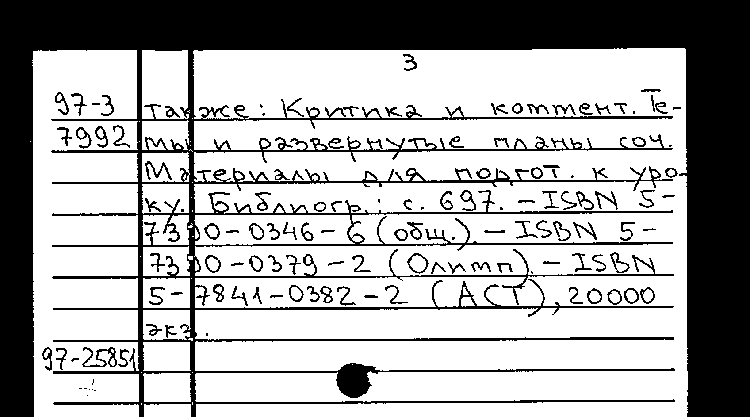 3
97-3 также: Критика и коммент. Те-
7992 мы и развернутые планы соч.
Материалы для подгот. к уро-
ку. Библиогр.: с. 697. – ISBN 5-
7390-0346-6 (общ.). – ISBN 5-
7390-0379-2 (Олимп) – ISBN
5-7841-0382-2 (АСТ), 20000
экз.
97-25851